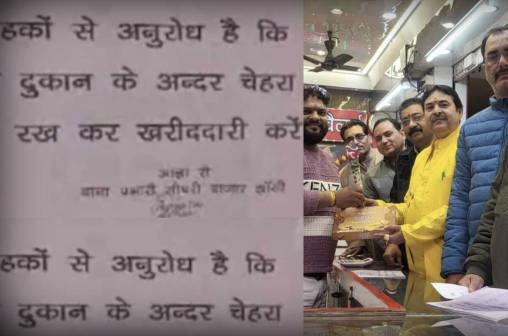 हकों से अनुरोध है कि
दुकान के अन्दर चेहरा
रख कर खरीददारी करें
आज्ञा से
थाना प्रभारी सीपरी बाजार झाँसी
हकों से अनुरोध है कि
दुकान के अन्दर चेहरा
KENZ